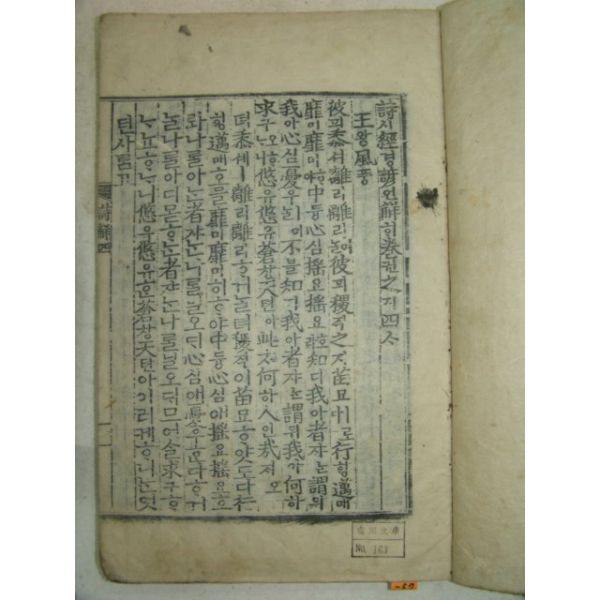 詩시經경諺언解ᄒᆡ卷권之지四ᄉᆞ
王왕風풍
彼피黍셔離리離리彼피稷직之지苗묘ㅣ로行ᄒᆡᆼ邁매
靡미靡미ᄒᆞ야中듕心심搖요搖요호라知디我아者쟈ᄂᆞᆫ謂위
我아心심憂우ㅣ不블知디我아者쟈ᄂᆞᆫ謂위我아何하
求구오ᄒᆞᄂᆞ니悠유悠유蒼창天텬아此ᄎᆞ何하人인哉ᄌᆡ오
뎌黍셔ㅣ離리離리ᄒᆞ거늘뎌稷직이苗묘ᄒᆞ얏도다行
ᄒᆡᆼ邁매홈을靡미靡미히ᄒᆞ야中듕心심애搖요搖요호
라나ᄅᆞᆯ아ᄂᆞᆫ者쟈ᄂᆞᆫ나ᄅᆞᆯ닐오ᄃᆡ心심애憂우ᄒᆞᆫ다ᄒᆞ거
늘나ᄅᆞᆯ아디몯ᄒᆞᄂᆞᆫ者쟈ᄂᆞᆫ나ᄅᆞᆯ닐오ᄃᆡ므어슬求구ᄒᆞ
ᄂᆞ뇨ᄒᆞᄂᆞ니悠유悠유ᄒᆞᆫ蒼창天텬아이리케ᄒᆞ니ᄂᆞᆫ엇
던사ᄅᆞᆷ고
詩解四
No.
-57